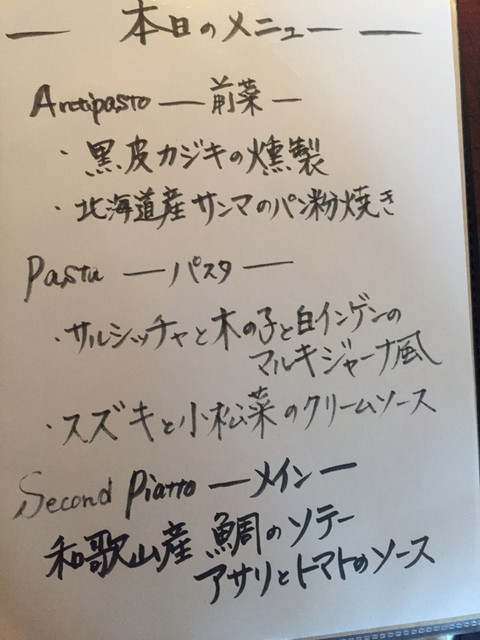 — 本日のメニュー —
Antipasto — 前菜 —
・黒皮カジキの燻製
・北海道産サンマのパン粉焼き
Pasta — パスタ —
・サルシッチャと木の子と白インゲンの
マルキジャーナ風
・スズキと小松菜のクリームソース
Second Piatto — メイン —
和歌山産 鯛のソテー
アサリとトマトのソース